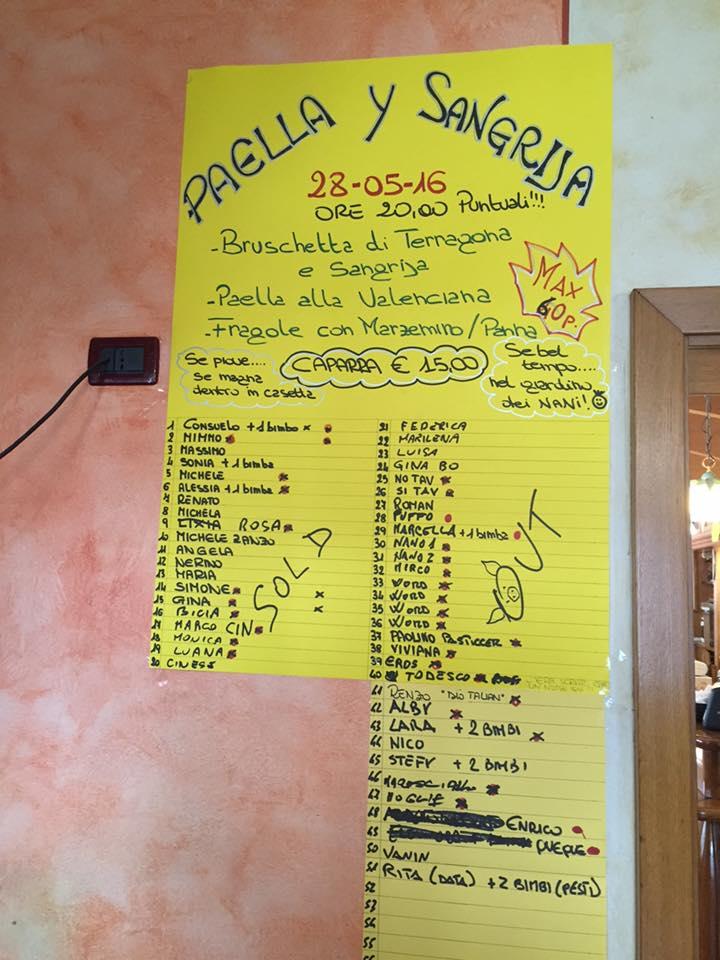 PAELLA Y SANGRIJA
28-05-16
ORE 20,00 Puntuali!!!
- Bruschetta di Terragona
e Sangrija
- Paella alla Valenciana
- Fragole con Marzemino/Panna
MAX
60p.
Se piove....
se magna
dentro in casetta
CAPARRA € 15,00
Se bel
tempo....
nel giardino
dei NANi!
1 CONSUELO +1 bimbo
2 MIMMO
3 MASSIMO
4 SONIA +1 bimba
5 MICHELE
6 ALESSIA +1 bimba
7 RENATO
8 MICHELA
9 ROSA
10 MICHELE ZANZO
11 ANGELA
12 NERINO
13 MARIA
14 SIMONE
15 GINA
16 BICIA
17 MARCO CIN
18 MONICA
19 LUANA
20 CINESE
SOLD
21 FEDERICA
22 MARILENA
23 LUISA
24 GINA BO
25 NO TAV
26 SI TAV
27 ROMAN
28 PUFFO
29 MARCELLA +1 bimba
30 NANO 1
31 NANO 2
32 MIRCO
33 WORD
34 WORD
35 WORD
36 WORD
37 PAOLINO PASTICCER
38 VIVIANA
39 EROS
40 TODESCO
OUT
41 RENZO "DIO TALIAN"
42 ALBY
43 LARA + 2 BIMBI
44 NICO
45 STEFY + 2 BIMBI
46
47 MOGLIE
48 ENRICO
49
50 VANIN
51 RITA (DATA) + 2 BIMBI (PESTI)
52
53
54
55